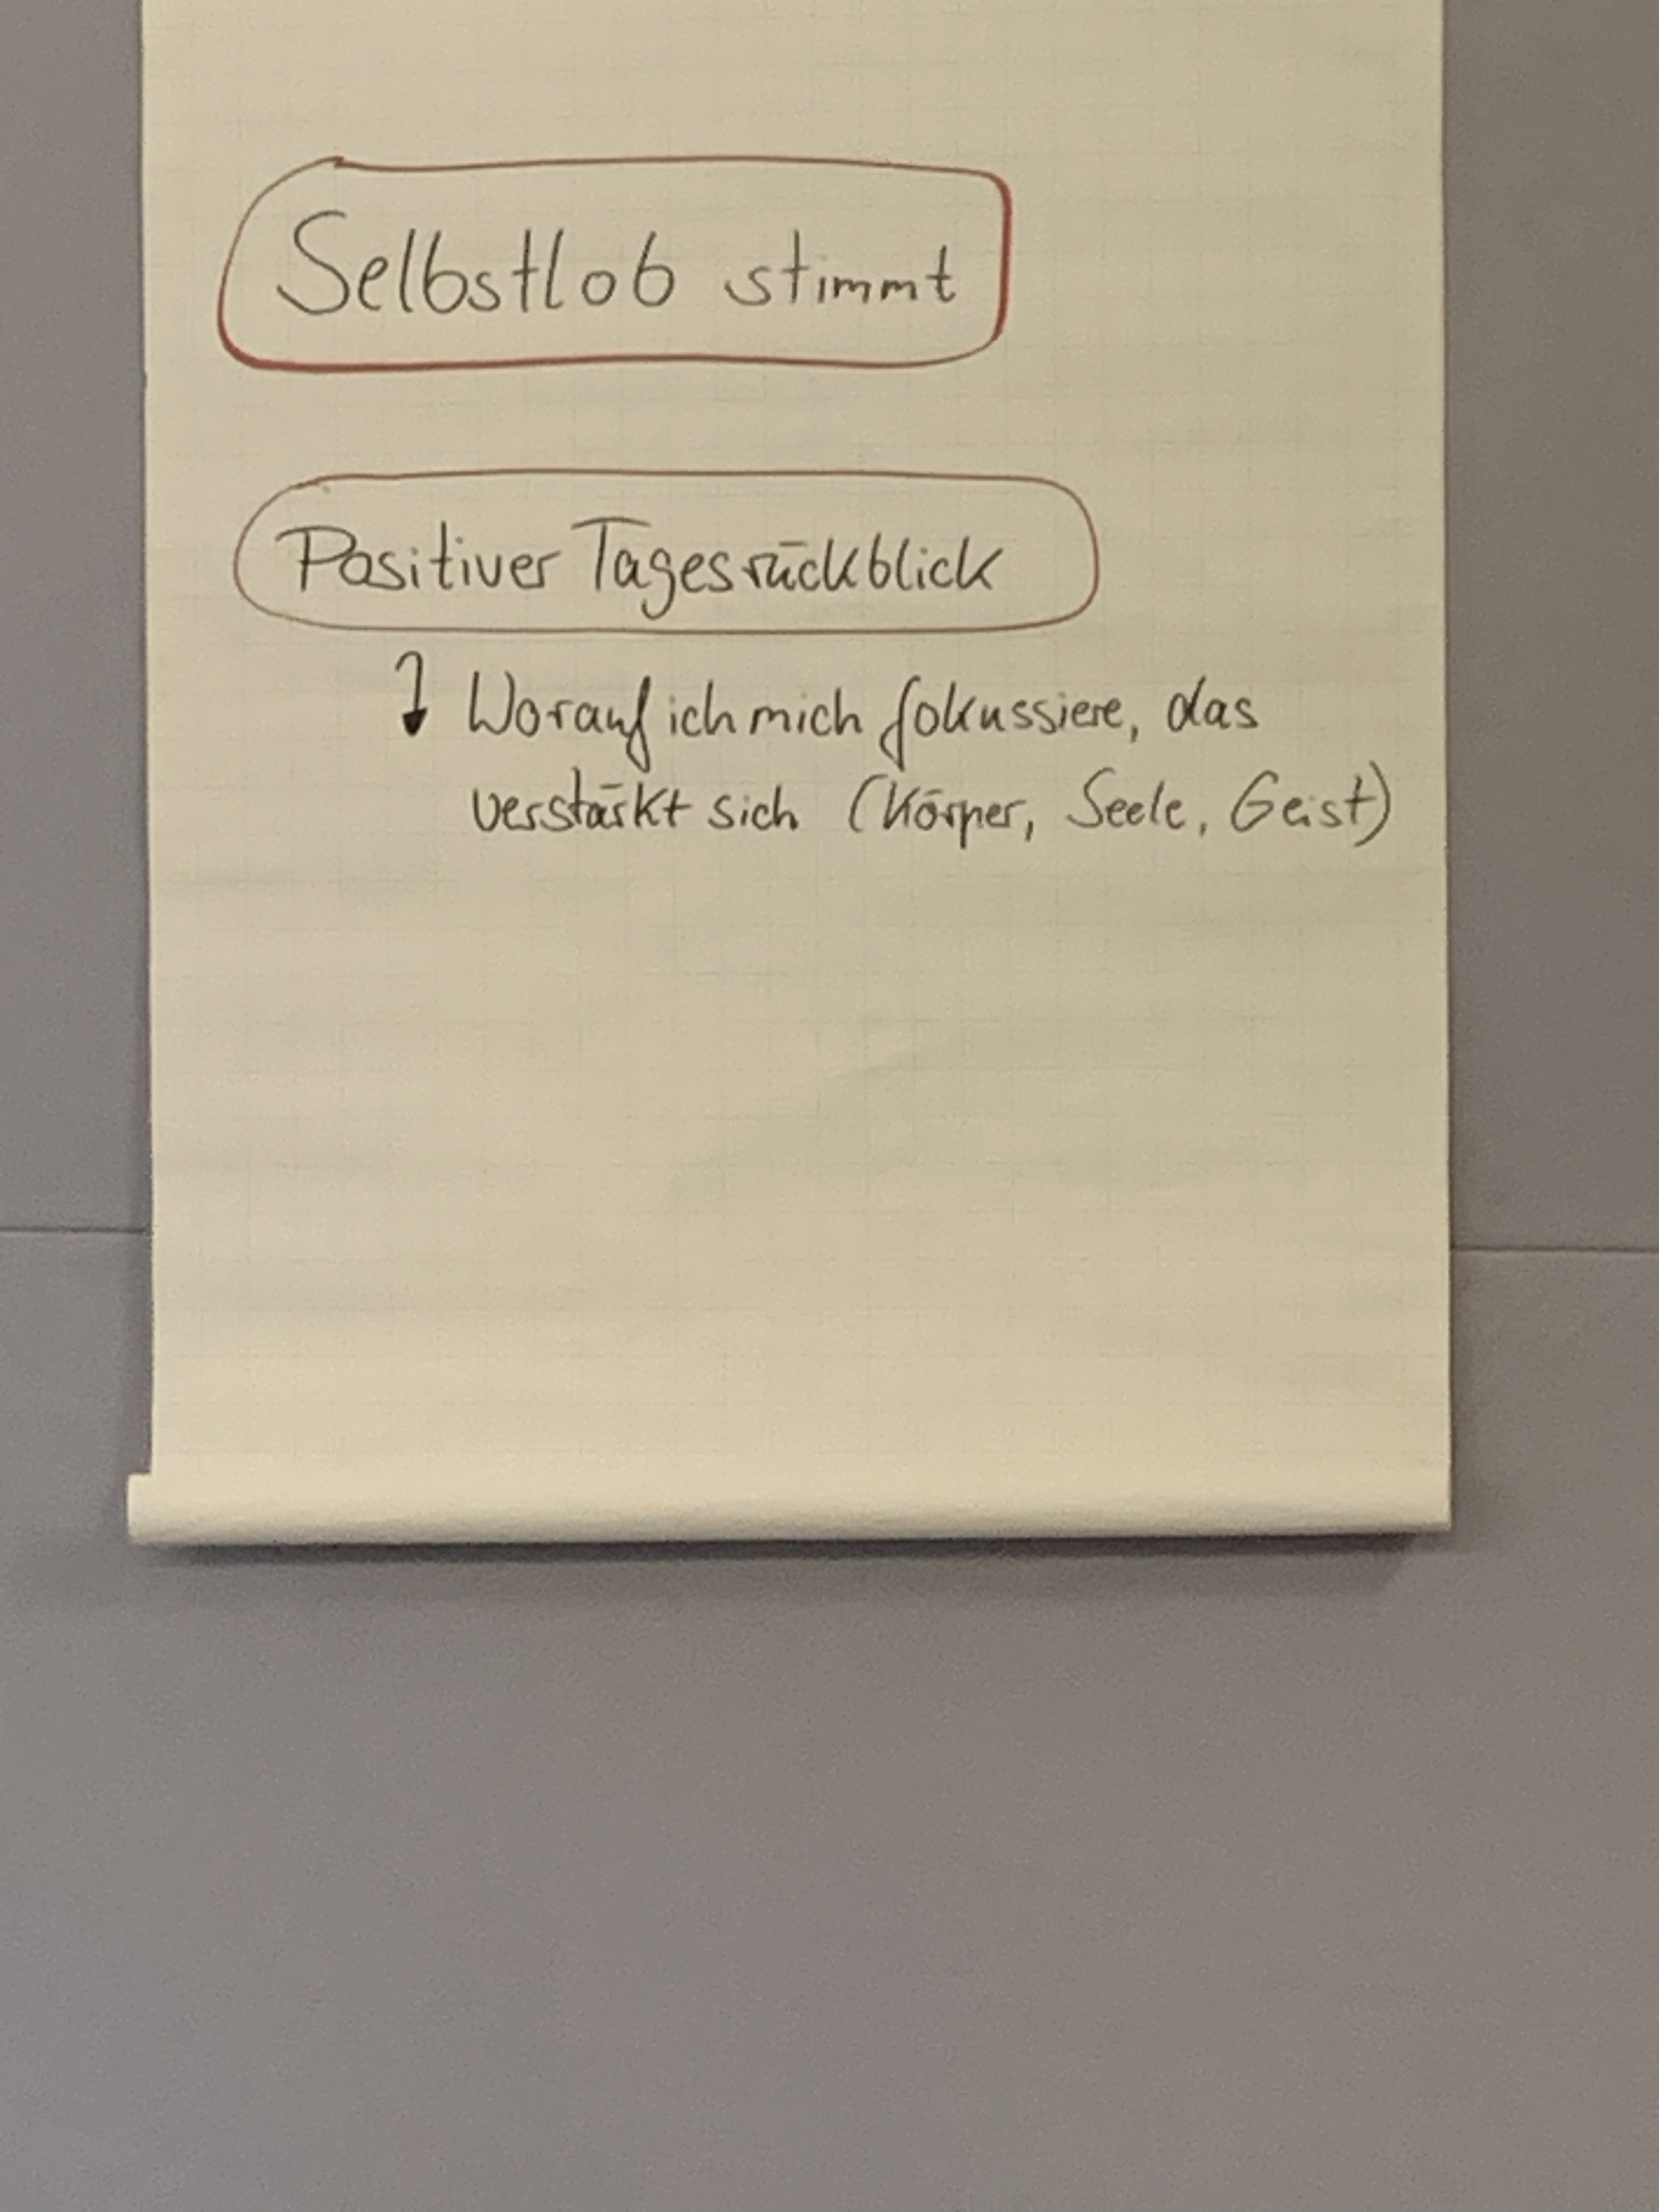 Selbstlob stimmt
Positiver Tagesrückblick
Worauf ich mich fokussiere, das
verstärkt sich (Körper, Seele, Geist)